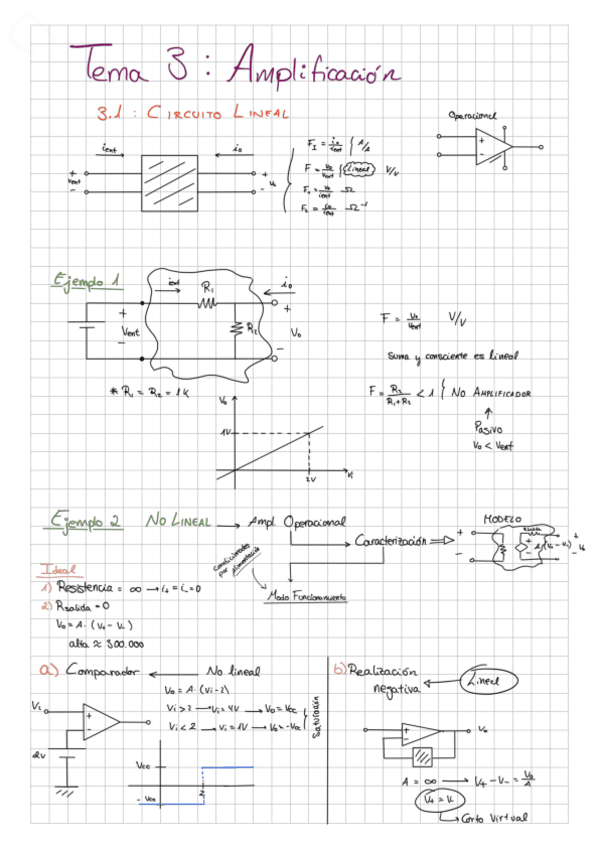 Tema 3 : Amplificación
3.1 : CIRCUITO LINEAL
Operacional
ient
io
+
Vent
-
+
Vo
-
F_I = io/ient } A/A
F = Vo/Vent } (Lineal) V/V
F1 = Vo/ient Ω
F2 = io/Vent Ω⁻¹
+
-
Ejemplo 1
ient
R1
io
+
Vent
-
R2
+
Vo
-
F = Vo/Vent V/V
Suma y consciente es lineal
* R1 = R2 = 1K
F = R2/(R1+R2) < 1 } NO AMPLIFICADOR
Pasivo
Vo < Vent
Vo
1V
2V
Vi
Ejemplo 2 NO LINEAL → Ampl. Operacional
MODELO
Caracterización ⇒
+
-
+
-
Condicionados por alimentación
Modo Funcionamiento
Ideal
1) Resistencia = ∞ → i+ = i- = 0
2) Rsalida = 0
Vo = A · (V+ - V-)
alta ≈ 300.000
a) Comparador ← No lineal
Vo = A · (Vi-2)
Vi > 2 → Vi = 4V → Vo = Vcc
Vi < 2 → Vi = 1V → Vo = -Vcc
Saturación
+
-
2V
Vcc
- Vcc
2
b) Realización negativa ← Lineal
+
-
Vo
A = ∞ → V+ - V- = Vo/A
V+ = V-
Corto Virtual